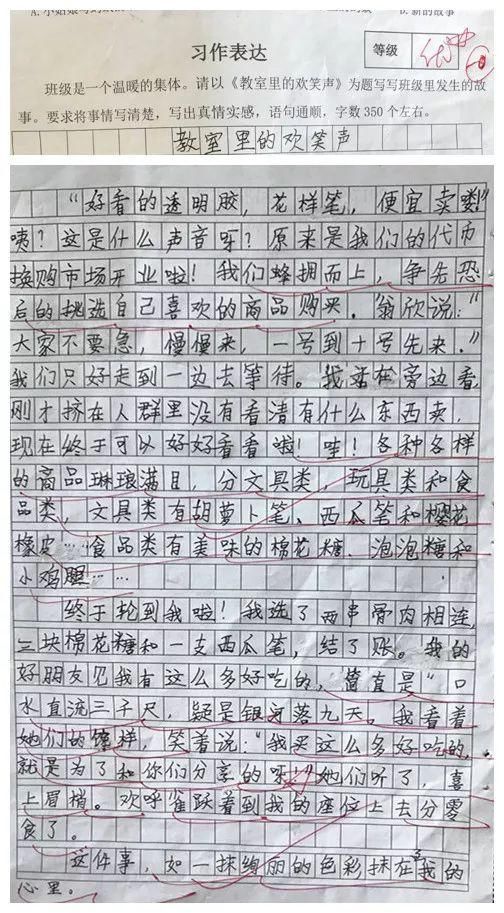 习作表达
等级
优
班级是一个温暖的集体。请以《教室里的欢笑声》为题写写班级里发生的故
事。要求将事情写清楚，写出真情实感，语句通顺，字数 350 个左右。
教室里的欢笑声
“好看的透明胶，花样笔，便宜卖喽”
咦？这是什么声音呀？原来是我们的代币
换购市场开业啦！我们蜂拥而上，争先恐
后的挑选自己喜欢的商品购买。翁欣说：“
大家不要急，慢慢来，一号到十号先来。”
我们只好走到一边去等待。我站在旁边看，
刚才挤在人群里没有看清有什么东西卖，
现在终于可以好好看看啦！哇！各种各样
的商品琳琅满目，分文具类，玩具类和食
品类，文具类有胡萝卜笔、西瓜笔和樱花
橡皮……食品类有美味的棉花糖、泡泡糖和
小鸡腿……
终于轮到我啦！我选了两串骨肉相连，
三块棉花糖和一支西瓜笔，结了账。我的
好朋友见我有这么多好吃的，简直是“口
水直流三千尺，疑是银河落九天。我看着
她们的馋样，笑着说：“我买这么多好吃的，
就是为了和你们分享的呀！”她们听了，喜
上眉梢。欢呼雀跃着到我的座位上去分零
食了。
这件事，如一抹绚丽的色彩抹在我的
心里。